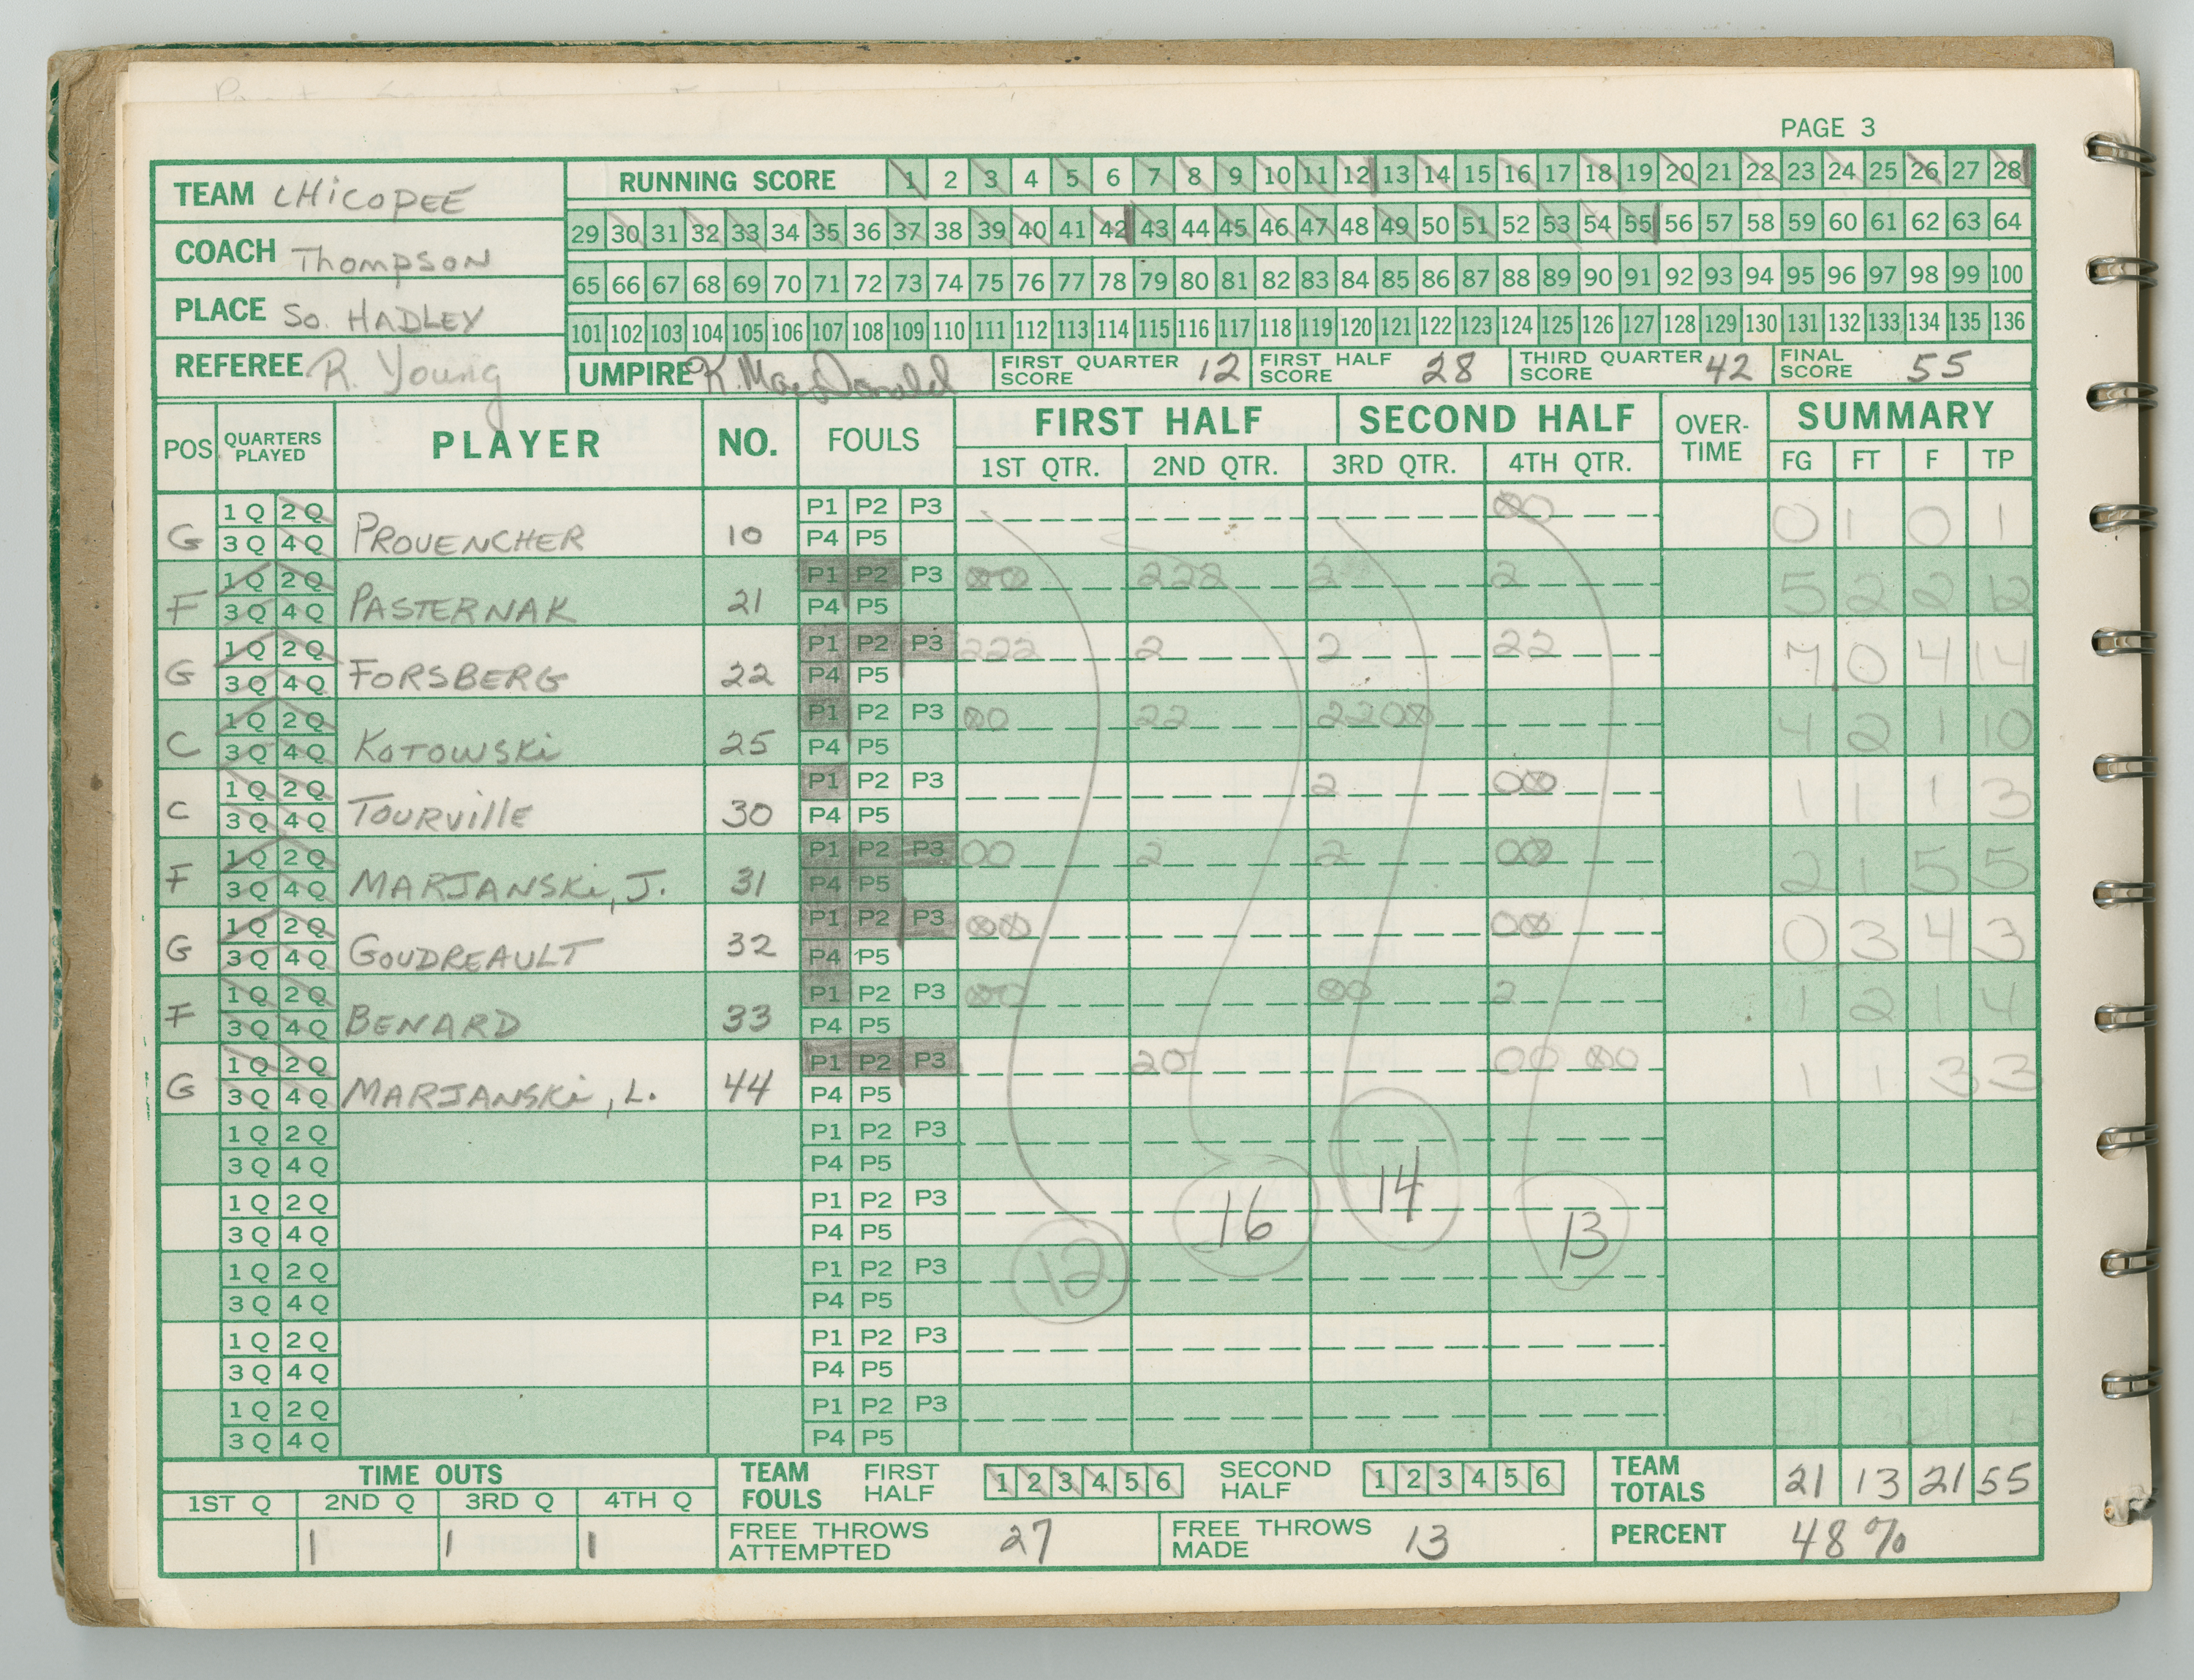 PAGE 3
TEAM CHicOPEE
RUNNING SCORE 1 2 3 4 5 6 7 8 9 10 11 12 13 14 15 16 17 18 19 20 21 22 23 24 25 26 27 28
29 30 31 32 33 34 35 36 37 38 39 40 41 42 43 44 45 46 47 48 49 50 51 52 53 54 55 56 57 58 59 60 61 62 63 64
COACH Thompson
65 66 67 68 69 70 71 72 73 74 75 76 77 78 79 80 81 82 83 84 85 86 87 88 89 90 91 92 93 94 95 96 97 98 99 100
PLACE So. HADLEY
101 102 103 104 105 106 107 108 109 110 111 112 113 114 115 116 117 118 119 120 121 122 123 124 125 126 127 128 129 130 131 132 133 134 135 136
REFEREE R. Young
UMPIRE K. MacDonald
FIRST QUARTER SCORE 12
FIRST HALF SCORE 28
THIRD QUARTER SCORE 42
FINAL SCORE 55
POS QUARTERS PLAYED PLAYER NO. FOULS FIRST HALF SECOND HALF OVER-TIME SUMMARY
1ST QTR. 2ND QTR. 3RD QTR. 4TH QTR. FG FT F TP
1Q 2Q P1 P2 P3 00
G 3Q 4Q PROVENCHER 10 P4 P5 0 1 0 1
1Q 2Q P1 P2 P3 00 222 2 2
F 3Q 4Q PASTERNAK 21 P4 P5 5 2 2 12
1Q 2Q P1 P2 P3 222 2 2 22
G 3Q 4Q FORSBERG 22 P4 P5 7 0 4 14
1Q 2Q P1 P2 P3 00 22 2200
C 3Q 4Q KOTOWSKi 25 P4 P5 4 2 1 10
1Q 2Q P1 P2 P3 2 00
C 3Q 4Q TOURVillE 30 P4 P5 1 1 1 3
1Q 2Q P1 P2 P3 00 2 2 00
F 3Q 4Q MARJANSKi, J. 31 P4 P5 2 1 5 5
1Q 2Q P1 P2 P3 00 00
G 3Q 4Q GOUDREAULT 32 P4 P5 0 3 4 3
1Q 2Q P1 P2 P3 00 00 2
F 3Q 4Q BENARD 33 P4 P5 1 2 1 4
1Q 2Q P1 P2 P3 20 00 00
G 3Q 4Q MARJANSKi, L. 44 P4 P5 1 1 3 3
1Q 2Q P1 P2 P3
3Q 4Q P4 P5
1Q 2Q P1 P2 P3
3Q 4Q P4 P5
12 16 14 13
1Q 2Q P1 P2 P3
3Q 4Q P4 P5
1Q 2Q P1 P2 P3
3Q 4Q P4 P5
1Q 2Q P1 P2 P3
3Q 4Q P4 P5
TIME OUTS
1ST Q 2ND Q 3RD Q 4TH Q
1 1 1
TEAM FOULS FIRST HALF 1 2 3 4 5 6 SECOND HALF 1 2 3 4 5 6
TEAM TOTALS 21 13 21 55
FREE THROWS ATTEMPTED 27
FREE THROWS MADE 13
PERCENT 48%